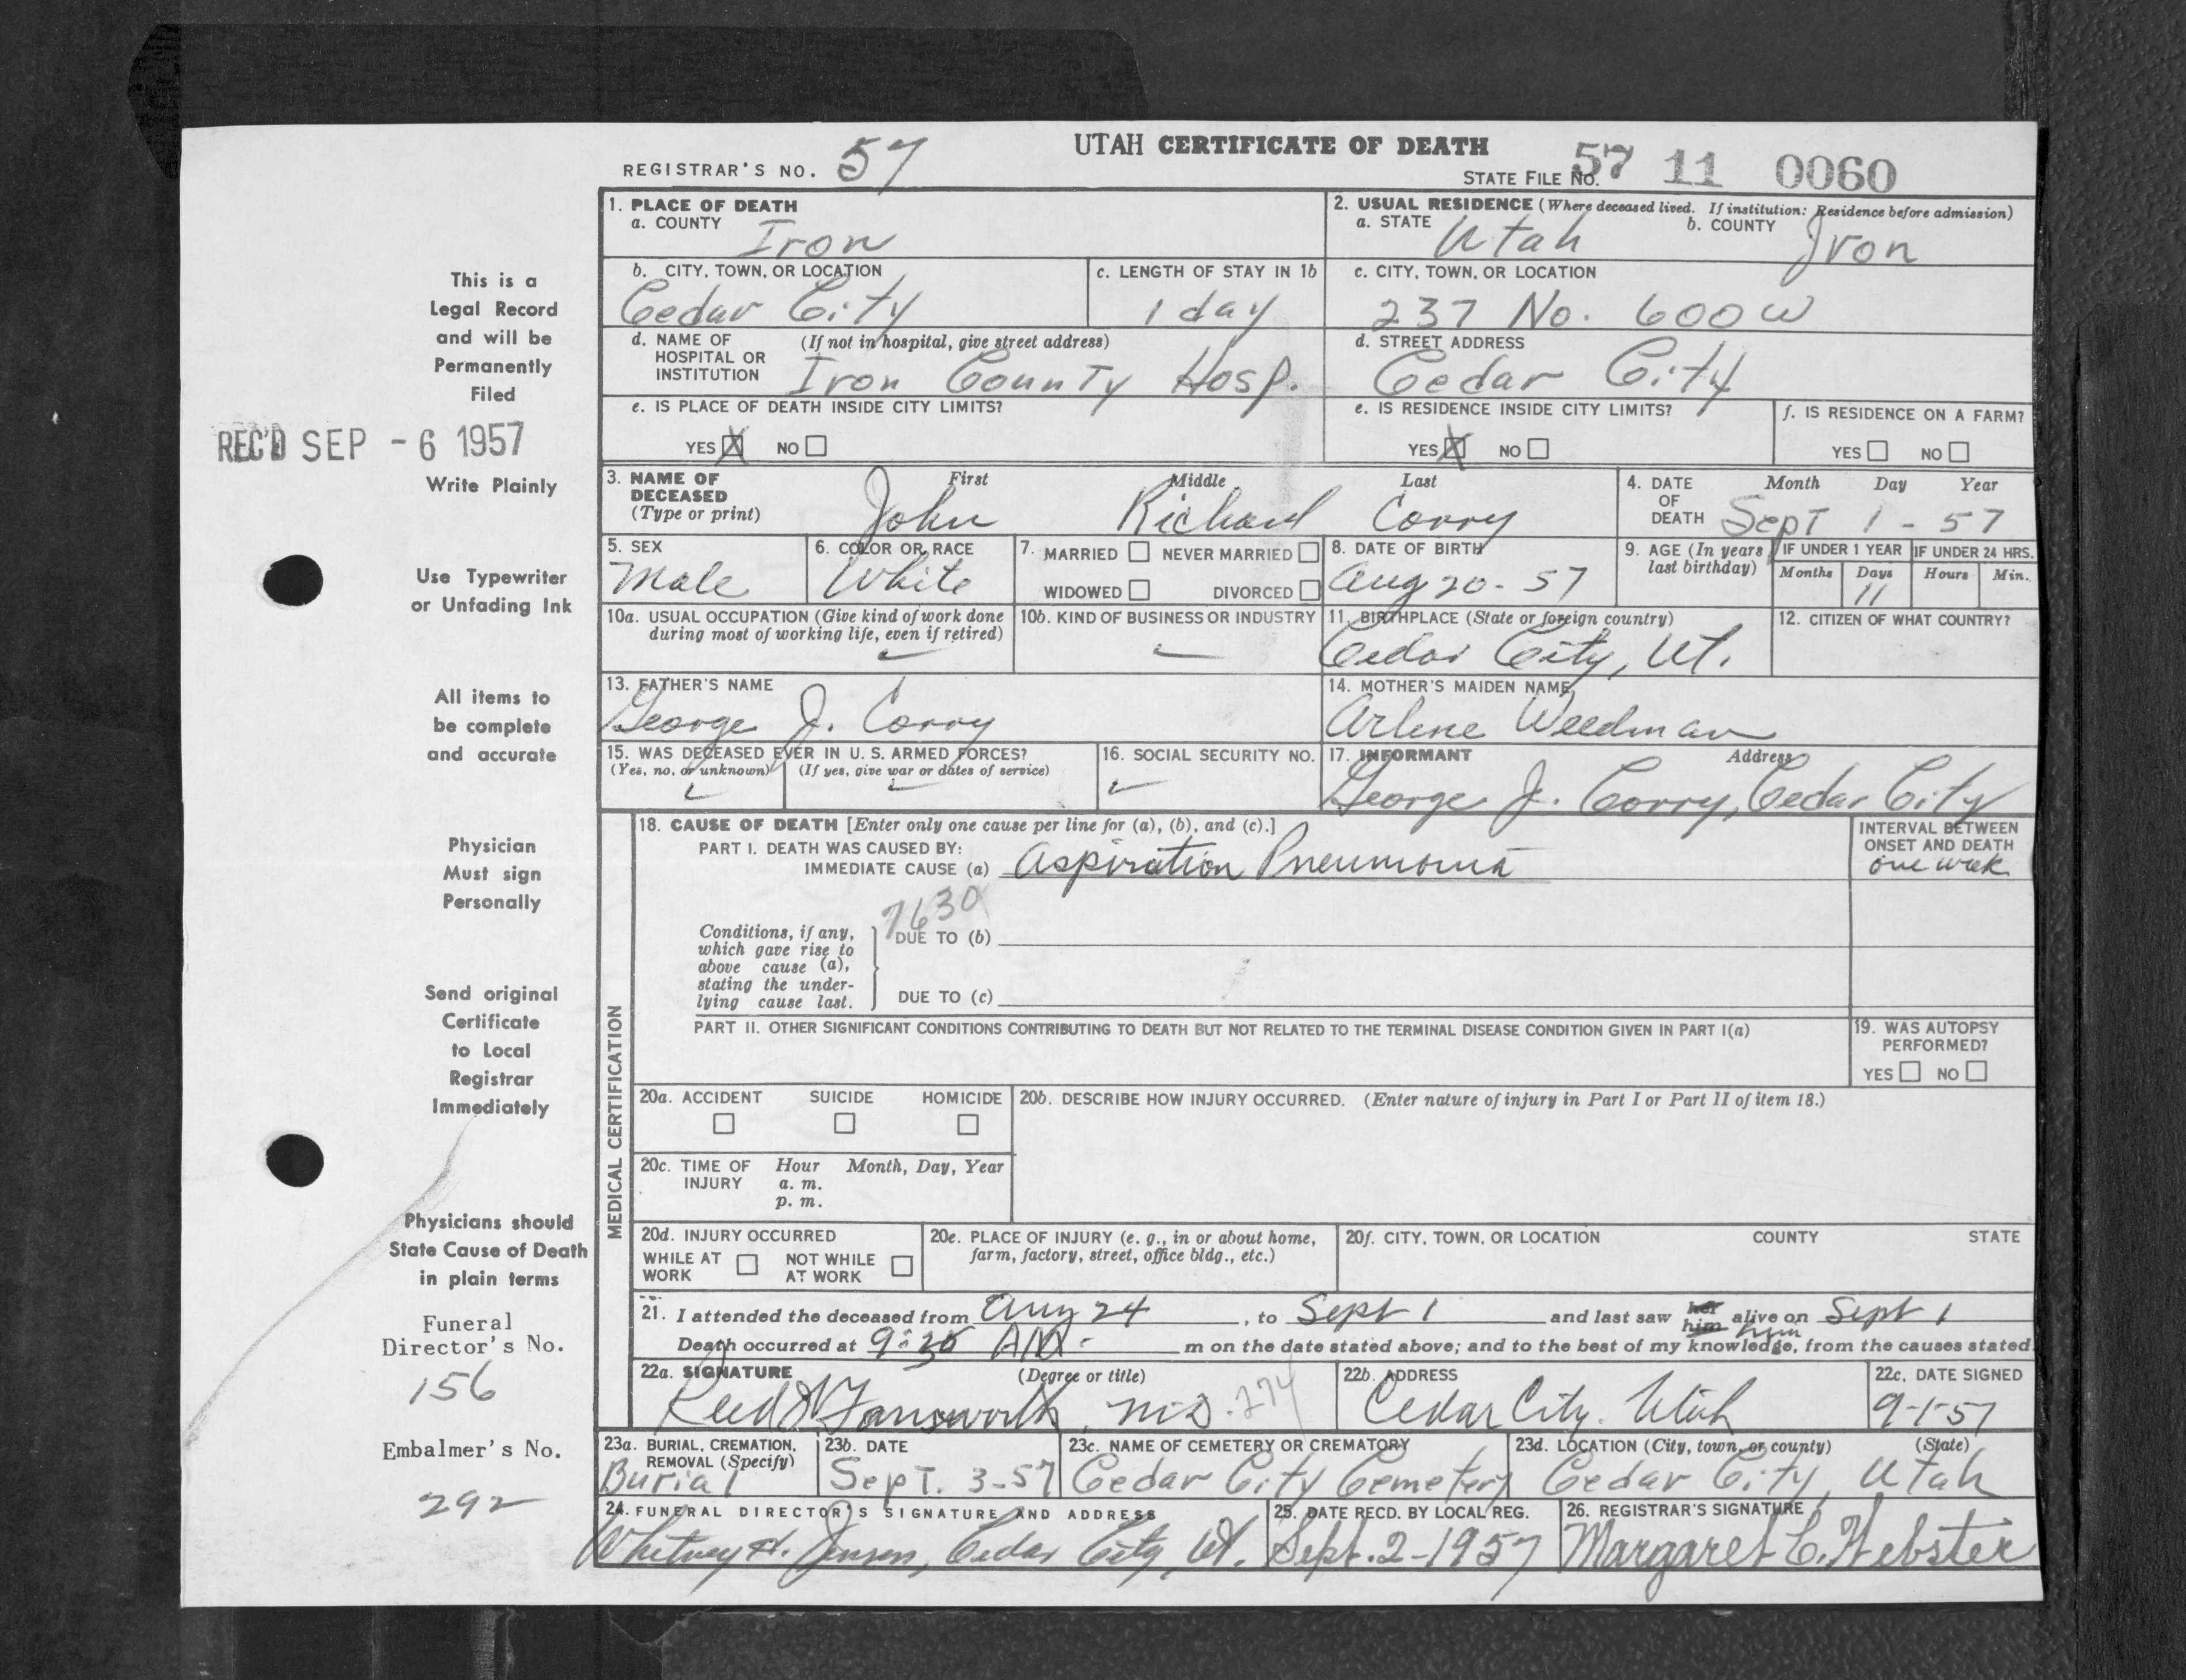 UTAH CERTIFICATE OF DEATH
REGISTRAR'S NO. 57
STATE FILE NO. 57 11 0060
1. PLACE OF DEATH
a. COUNTY Iron
2. USUAL RESIDENCE (Where deceased lived. If institution: Residence before admission)
a. STATE Utah b. COUNTY Iron
b. CITY, TOWN, OR LOCATION Cedar City
c. LENGTH OF STAY IN 1b 1 day
c. CITY, TOWN, OR LOCATION 237 No. 600 W
d. NAME OF HOSPITAL OR INSTITUTION (If not in hospital, give street address) Iron County Hosp.
d. STREET ADDRESS Cedar City
e. IS PLACE OF DEATH INSIDE CITY LIMITS?
YES X NO
e. IS RESIDENCE INSIDE CITY LIMITS?
YES X NO
f. IS RESIDENCE ON A FARM?
YES NO
3. NAME OF DECEASED (Type or print) First Middle Last
John Richard Corry
4. DATE OF DEATH Month Day Year
Sept 1 - 57
5. SEX Male
6. COLOR OR RACE White
7. MARRIED NEVER MARRIED
WIDOWED DIVORCED
8. DATE OF BIRTH Aug 20 - 57
9. AGE (In years last birthday)
IF UNDER 1 YEAR Months Days 11
IF UNDER 24 HRS. Hours Min.
10a. USUAL OCCUPATION (Give kind of work done during most of working life, even if retired)
10b. KIND OF BUSINESS OR INDUSTRY
11. BIRTHPLACE (State or foreign country) Cedar City, Ut.
12. CITIZEN OF WHAT COUNTRY?
13. FATHER'S NAME George J. Corry
14. MOTHER'S MAIDEN NAME Arlene Weedman
15. WAS DECEASED EVER IN U. S. ARMED FORCES?
(Yes, no, or unknown) (If yes, give war or dates of service)
16. SOCIAL SECURITY NO.
17. INFORMANT Address
George J. Corry, Cedar City
MEDICAL CERTIFICATION
18. CAUSE OF DEATH [Enter only one cause per line for (a), (b), and (c).]
PART I. DEATH WAS CAUSED BY:
IMMEDIATE CAUSE (a) Aspiration Pneumonia
INTERVAL BETWEEN ONSET AND DEATH
one week
7630
Conditions, if any, which gave rise to above cause (a), stating the underlying cause last.
DUE TO (b)
DUE TO (c)
PART II. OTHER SIGNIFICANT CONDITIONS CONTRIBUTING TO DEATH BUT NOT RELATED TO THE TERMINAL DISEASE CONDITION GIVEN IN PART I(a)
19. WAS AUTOPSY PERFORMED?
YES NO
20a. ACCIDENT SUICIDE HOMICIDE
20b. DESCRIBE HOW INJURY OCCURRED. (Enter nature of injury in Part I or Part II of item 18.)
20c. TIME OF INJURY Hour Month, Day, Year
a. m.
p. m.
20d. INJURY OCCURRED
WHILE AT WORK NOT WHILE AT WORK
20e. PLACE OF INJURY (e. g., in or about home, farm, factory, street, office bldg., etc.)
20f. CITY, TOWN, OR LOCATION COUNTY STATE
21. I attended the deceased from Aug 24, to Sept 1 and last saw her him alive on Sept 1
him
Death occurred at 9:30 AM. m on the date stated above; and to the best of my knowledge, from the causes stated.
22a. SIGNATURE (Degree or title)
Reed Farnsworth, M.D. 274
22b. ADDRESS Cedar City. Utah
22c. DATE SIGNED 9-1-57
23a. BURIAL, CREMATION, REMOVAL (Specify) Burial
23b. DATE Sept. 3-57
23c. NAME OF CEMETERY OR CREMATORY Cedar City Cemetery
23d. LOCATION (City, town, or county) (State) Cedar City, Utah
24. FUNERAL DIRECTOR'S SIGNATURE AND ADDRESS
Whitney H. Jensen, Cedar City, Ut.
25. DATE RECD. BY LOCAL REG. Sept. 2-1957
26. REGISTRAR'S SIGNATURE Margaret C. Webster
This is a
Legal Record
and will be
Permanently
Filed
REC'D SEP - 6 1957
Write Plainly
Use Typewriter
or Unfading Ink
All items to
be complete
and accurate
Physician
Must sign
Personally
Send original
Certificate
to Local
Registrar
Immediately
Physicians should
State Cause of Death
in plain terms
Funeral
Director's No.
156
Embalmer's No.
292